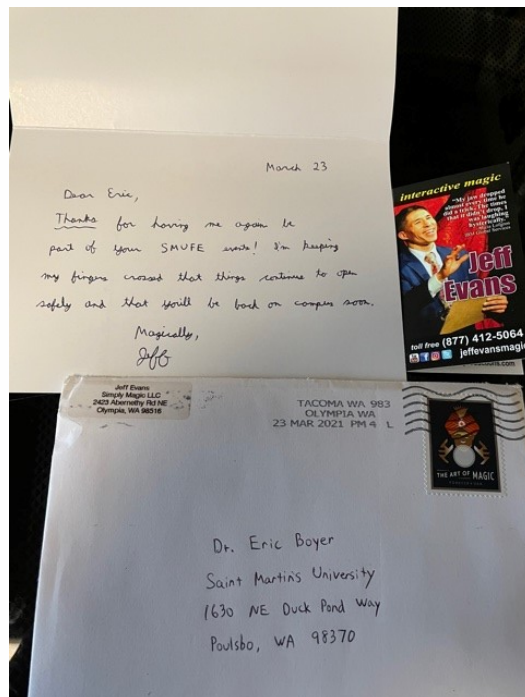 March 23
Dear Eric,
Thanks for having me again be
part of your SMUFE events! I'm keeping
my fingers crossed that things continue to open
safely and that you'll be back on campus soon.
Magically,
Jeff
interactive magic
"My jaw dropped
almost every time he
did a trick. The times
that it didn't drop, I
was laughing
hysterically."
Jeff
Evans
toll free (877) 412-5064
jeffevansmagic
Jeff Evans
Simply Magic LLC
2423 Abernethy Rd NE
Olympia, WA 98516
TACOMA WA 983
OLYMPIA WA
23 MAR 2021 PM 4 L
THE ART OF MAGIC
Dr. Eric Boyer
Saint Martin's University
1630 NE Duck Pond Way
Poulsbo, WA 98370